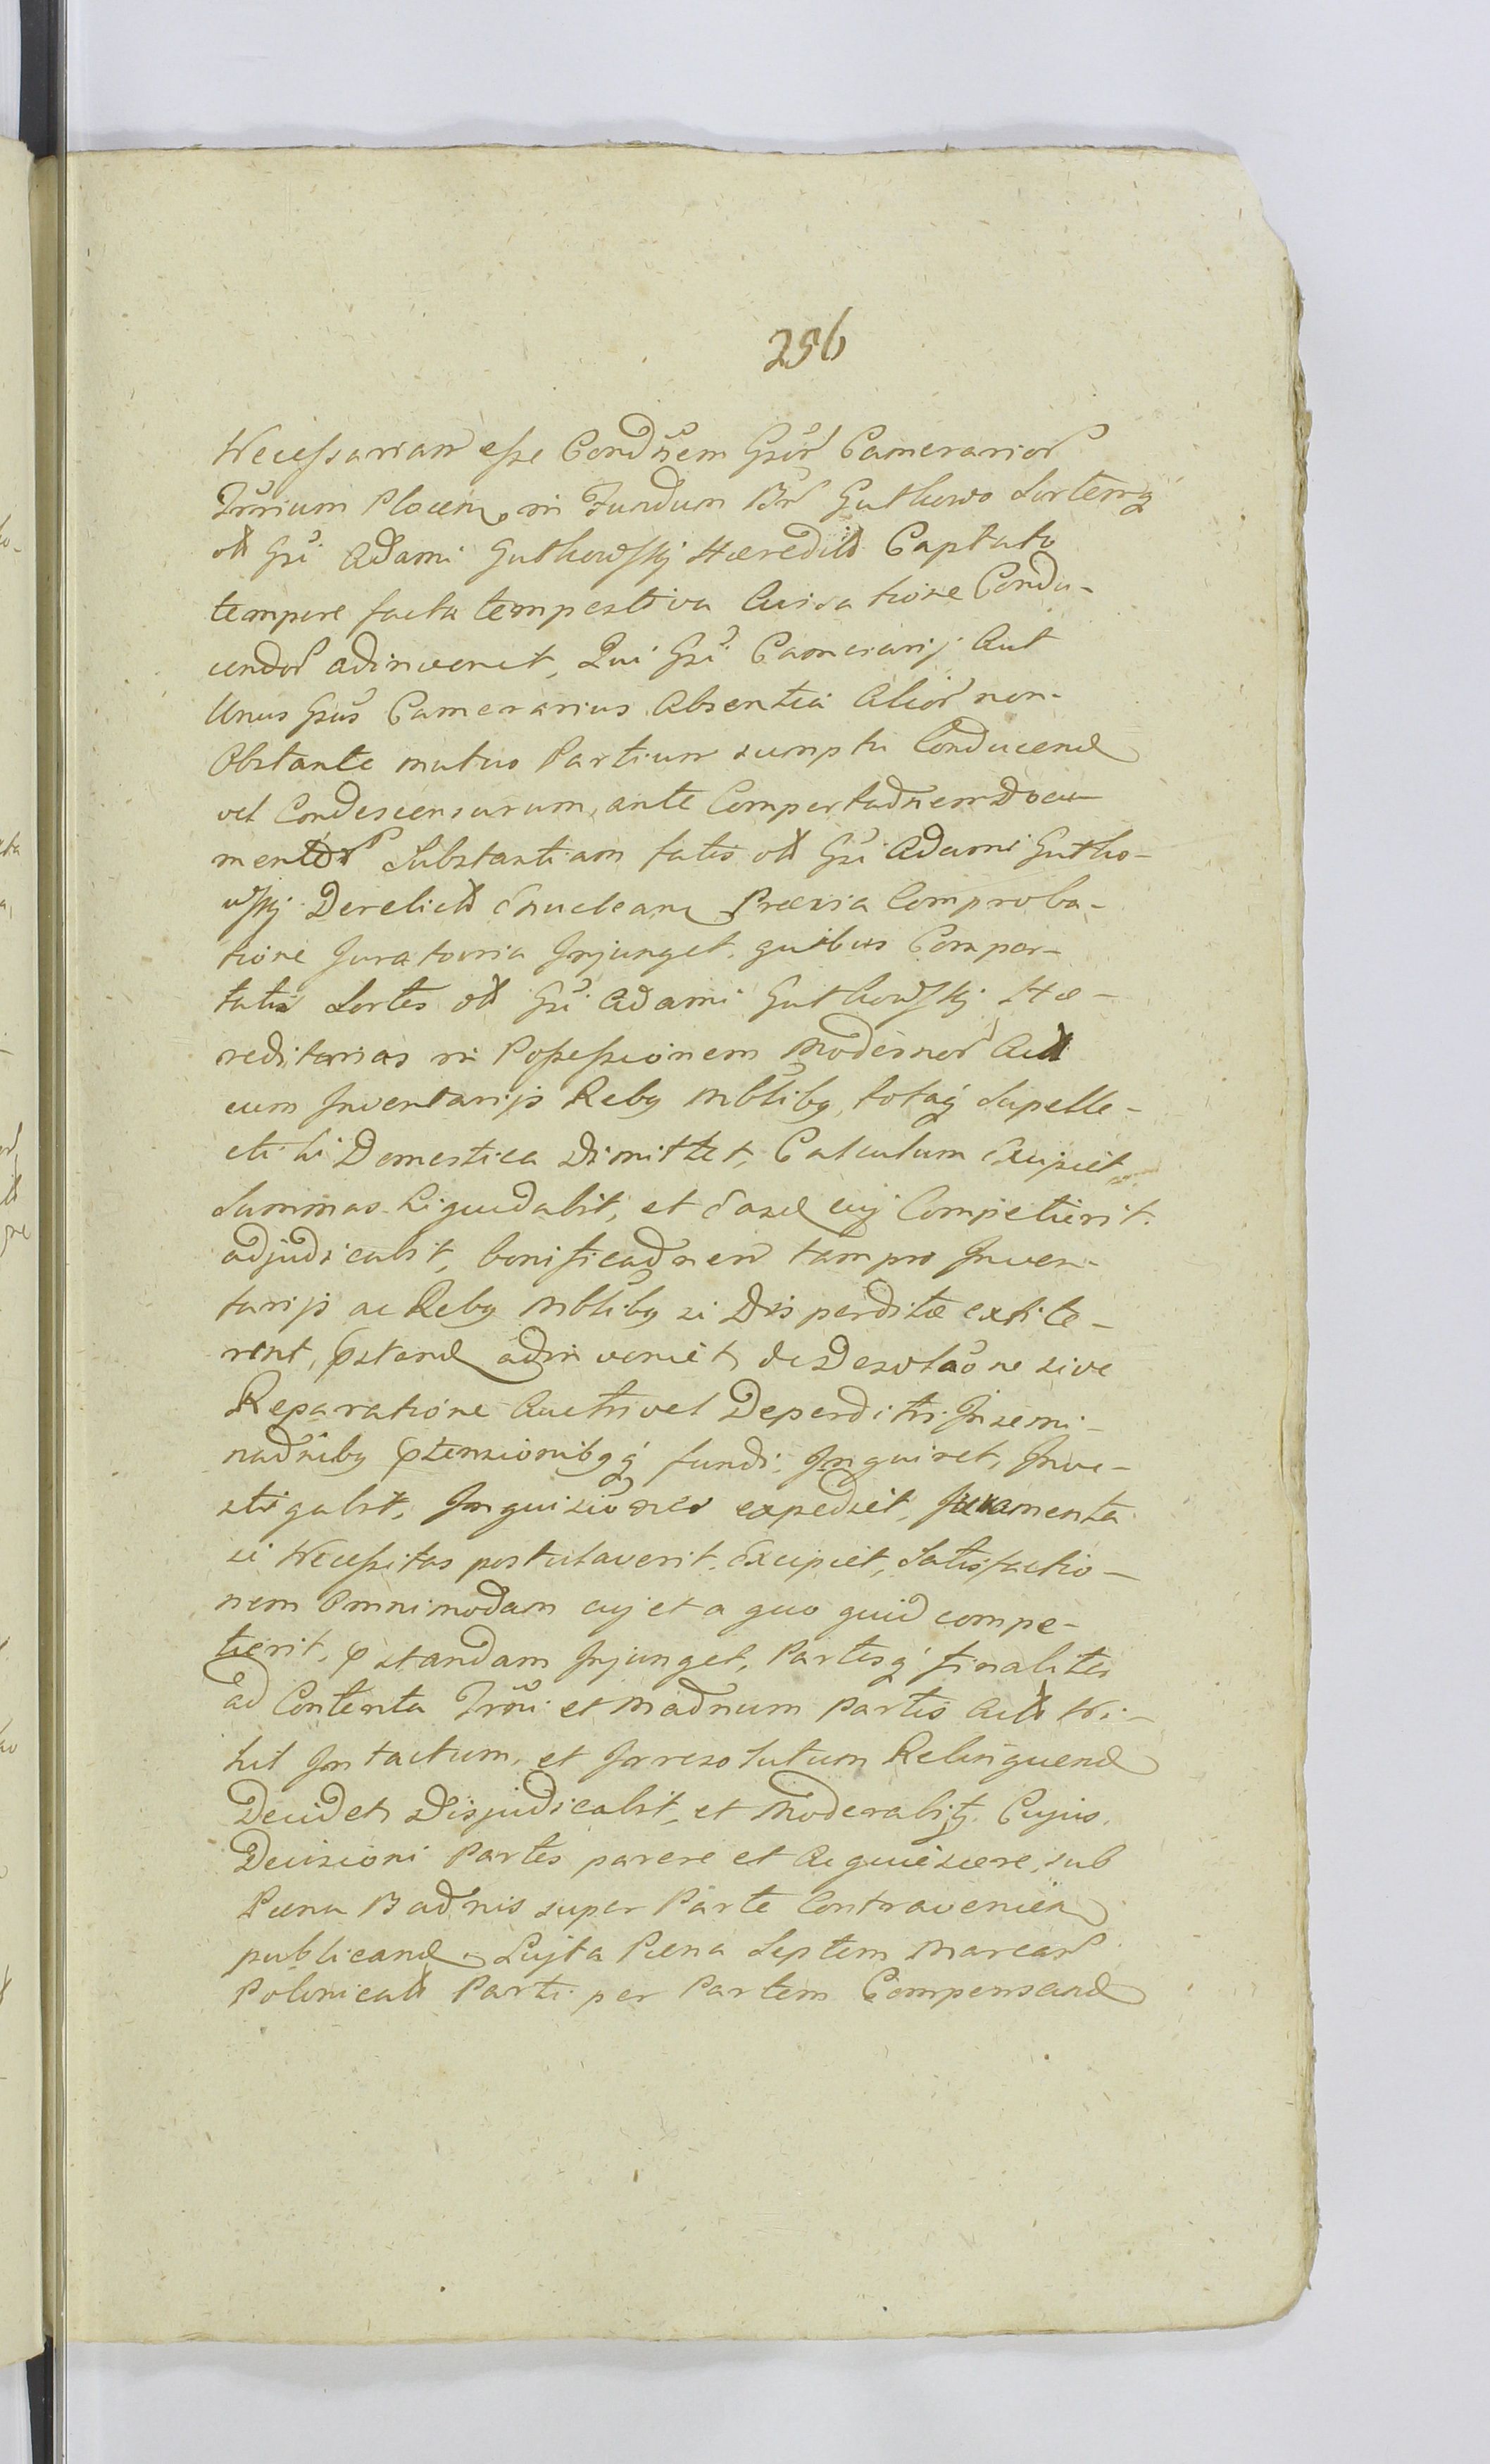 256
Necessariam esse Condnem Gsor Camerarior
Trrium Plocen in Fundum Br Gutkowo Sortemq
olt Gsi Adami Gutkowskj Haeredit Captato
tempore facta tempestiva Avisatione Condu-
cendor adinvenit, Qui Gsi Camerarij Aut
Unus Gsus Camerarius Absentia Alior non-
Obstante mutuo Partium sumptu Conducend
vel Condescensurum, ante Comportadnem Docu-
mentor Substantiam fatis olt Gsi Adami Gutko-
wskj Derelict Enuclean Praevia Comproba-
tione Juratoria Injunget, quibus Compor-
tatis Sortes olt Gsi Adami Gutkowskj Hae-
reditarias in Possessionem Modernor Act
cum Inventarijs Rebq Mbtibq, totaq Supelle-
ctili Domestica Dimittet, Calculum Excipiet
Summas Liquidabit, et Easd cuj Competierit
adjudicabit, bonificadnem tam pro Inven-
tarijs ac Rebq Mbtibq si Disperditae extite-
rint, pstand adinveniet, de Desolaone sive
Reparatione Aucti vel Deperditi Insemi-
nadnibq ptensionibqq fundi, Inquiret, Inve-
stigabit, Inquisiones expediet, Juramenta
si Necessitas postulaverit Excipiet, Satisfactio-
nem Omnimodam cuj et a quo quid compe-
tierit, pstandam Injunget, Partesq finaliter
ad Contenta Trmi et Madnum Partis Act Ni-
hil Intactum, et Irresolutum Relinquend
Decidet, Disjudicabit, et Moderabitq. Cujus
Decisioni Partes parere et Acquiescere, sub
Paena Badnis super Parte Contravenien
publicand. Lujta Paena Septem Marcar
Polonicalt Parti per Partem Compensand